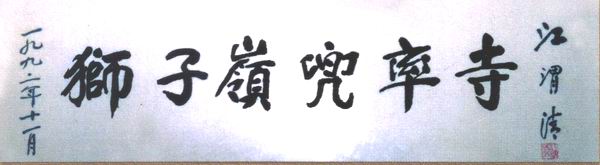 一九九二年十一月
獅子嶺兜率寺
江渭清